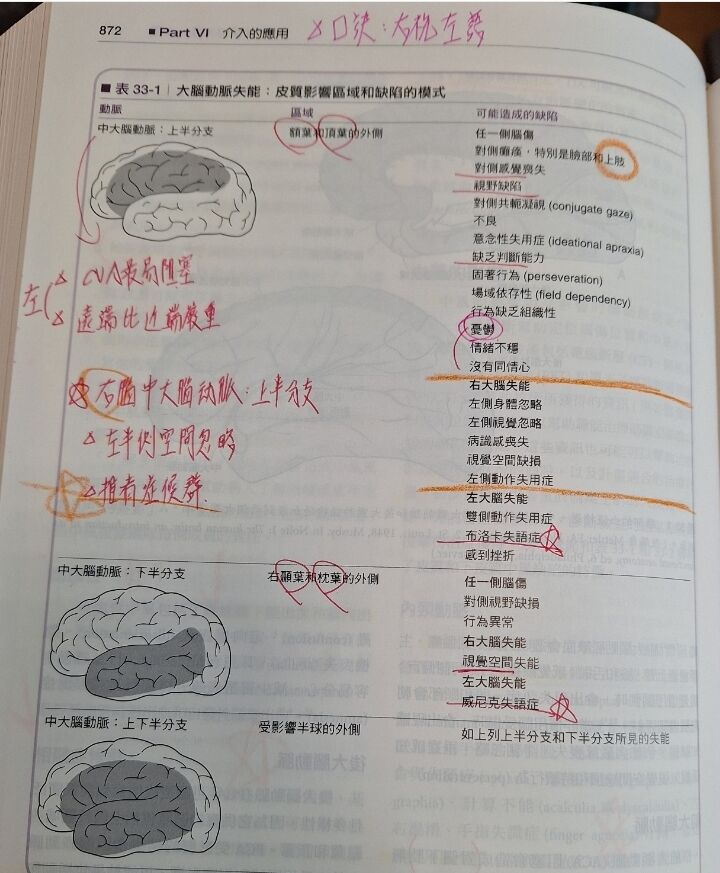 872 ■ Part VI 介入的應用
☆口訣：右枕左語
■ 表 33-1 | 大腦動脈失能：皮質影響區域和缺陷的模式
動脈 區域 可能造成的缺陷
中大腦動脈：上半分支 額葉和頂葉的外側 任一側腦傷
對側癱瘓，特別是臉部和上肢
對側感覺喪失
視野缺陷
對側共軛凝視 (conjugate gaze)
不良
意念性失用症 (ideational apraxia)
缺乏判斷能力
固著行為 (perseveration)
場域依存性 (field dependency)
行為缺乏組織性
憂鬱
情緒不穩
沒有同情心
左
CVA最易阻塞
遠端比近端嚴重
右腦中大腦動脈：上半分支
左半側空間忽略
推者症候群.
右大腦失能
左側身體忽略
左側視覺忽略
病識感喪失
視覺空間缺損
左側動作失用症
左大腦失能
雙側動作失用症
布洛卡失語症
感到挫折
中大腦動脈：下半分支 右顳葉和枕葉的外側 任一側腦傷
對側視野缺損
行為異常
右大腦失能
視覺空間失能
左大腦失能
威尼克失語症
中大腦動脈：上下半分支 受影響半球的外側 如上列上半分支和下半分支所見的失能